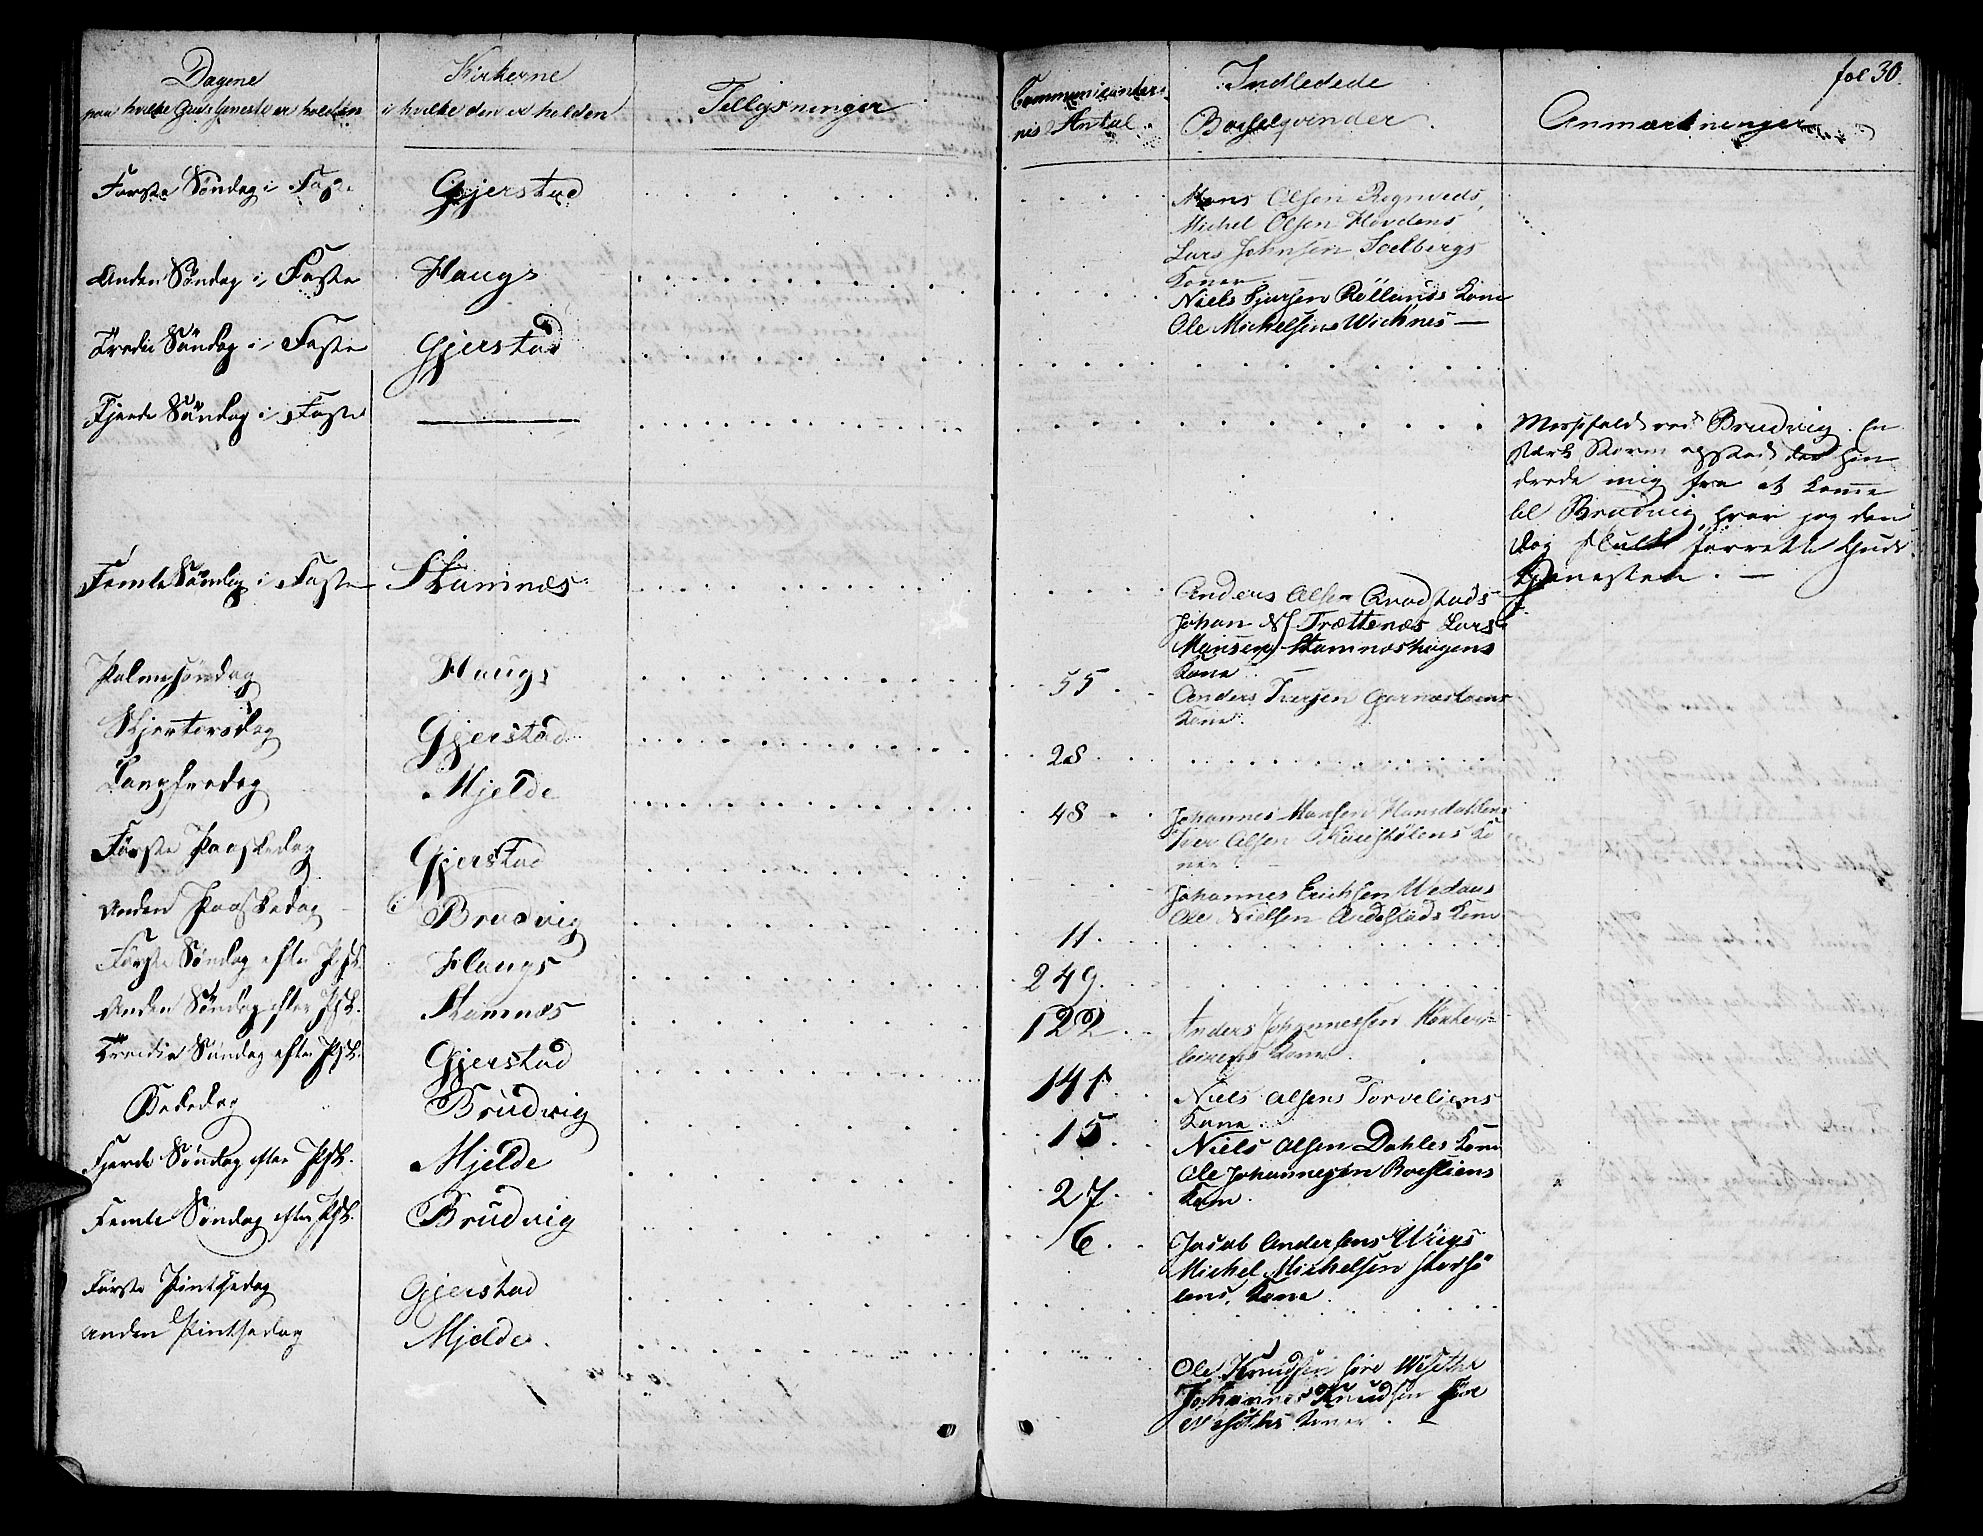 fol 30
Dagene
paa hvilke Gudstjeneste er holden
Kirkerne
i hvilke den er holden
Tillysninger
Communicanter-
nes Antal
Indledede
Barselqvinder
Anmærkninger
Første Søndag i Faste Gjerstad
Mons Olsen
Michel Olsen Hovdens
Lars Johnsen Soelbergs
Koner
Anden Søndag i Faste Haugs
Niels Kone
Ole Michelsens Wichnes —
Tredie Søndag i Faste Gjerstad
Fjerde Søndag i Faste —
Messefald ved Brudvig. En
stærk Storm opstod, der hin
drede mig fra at komme
til Brudvig, hvor jeg den
Dag skulde forrette Guds
tjenesten. —
Femte Søndag i Faste Stamnæs
Anders Olsen
Johan Trættenæs Lars
Monsen Stamneshougens
Kone
Palmesøndag Haugs 55
Anders Iversen
Kone
Skjertorsdag Gjerstad 28
Langfredag Mjelde 48
Johannes Hansen
Iver Olsen Ko
ner
Første Paaskedag Gjerstad
Johannes Erichsen
Ole Nielsen Kone
Anden Paaskedag Brudvig 11
Første Søndag efter Psk. Haugs 249
Anden Søndag efter Psk. Stamnæs 122
Anders Johannessen
Kone
Tredie Søndag efter Psk. Gjerstad 141
Niels Olsens Torveliens
Kone
Bededag Brudvig 15
Niels Olsen Dahles Kone
Fjerde Søndag efter Psk. Mjelde 27
Ole Johannesen
Kone
Femte Søndag efter Psk. Brudvig 6
Jacob Andersens
Michel Michelsen
Kone
Første Pintsedag Gjerstad
Anden Pintsedag Mjelde
Ole Knudsen
Johannes Knudsen
Koner